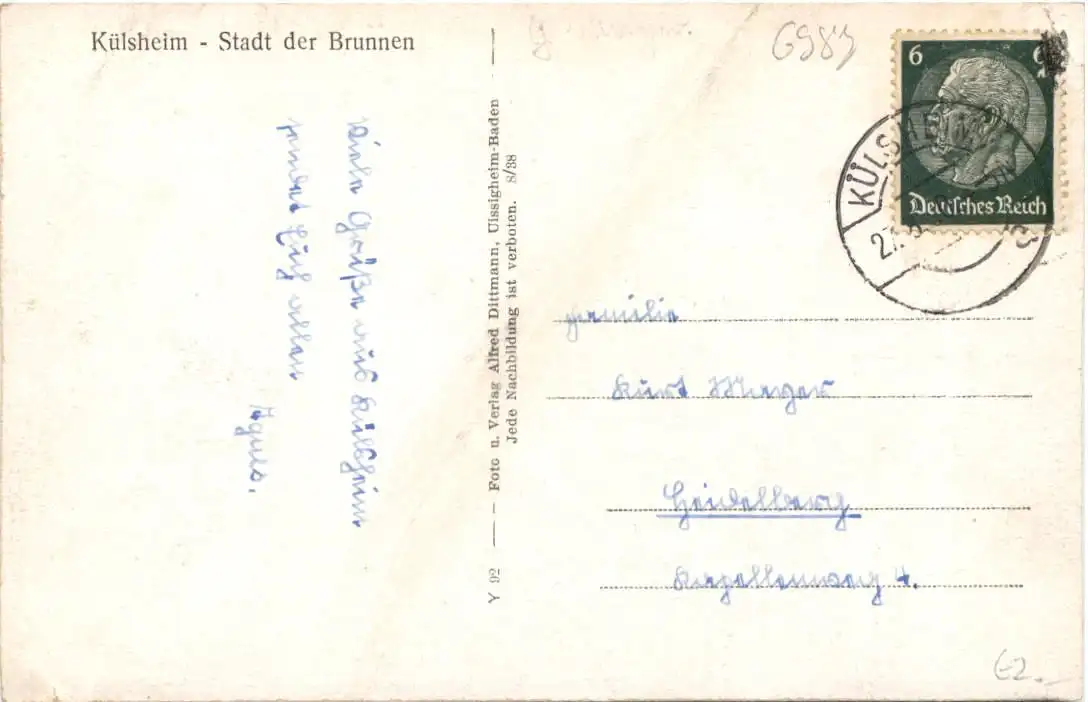 Külsheim - Stadt der Brunnen
Viele Grüße aus Külsheim
sendet Euch allen
Agnes.
Y 92 — Foto u. Verlag Alfred Dittmann, Uissigheim-Baden
Jede Nachbildung ist verboten. 8/38
6989
6 6
Deutsches Reich
KÜLSHEIM
27.
Familie
Kurt Meyer
Heidelberg
Kapellenweg 4.